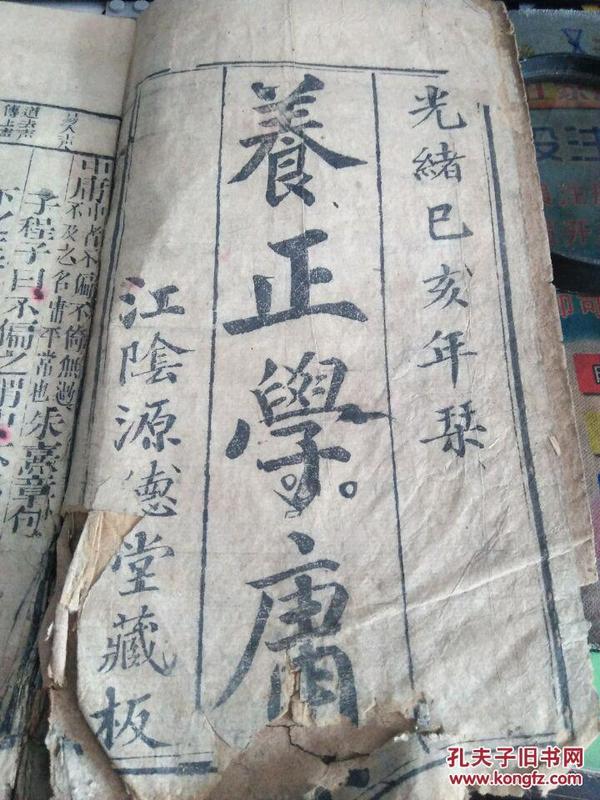 光緒己亥年栞
養正學庸
江陰源德堂藏板
中庸中者不偏不倚無過
不及之名庸平常也
朱熹章句
子程子曰不偏之謂
孔夫子旧书网
www.kongfz.com